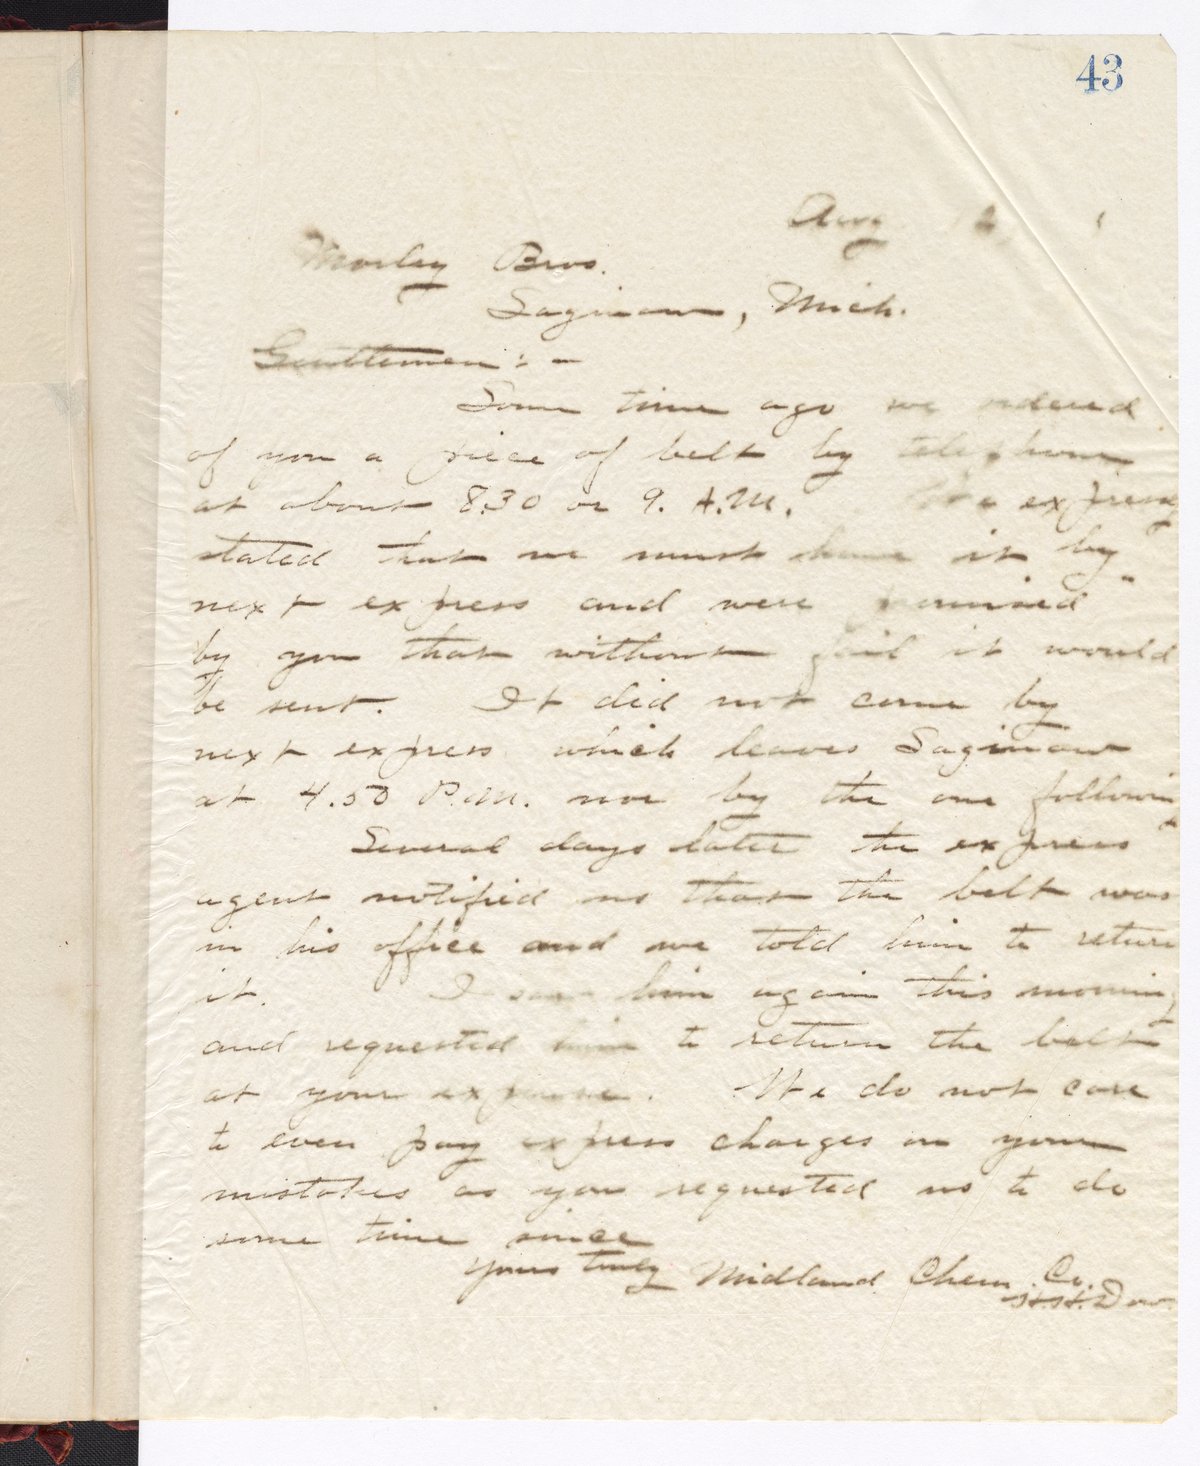 43
Aug
Morley Bros.
Saginaw, Mich.
Gentlemen:-
Some time ago we ordered
of you a piece of belt by telephone
at about 8.30 or 9. A.M. We expressly
stated that we must have it by
next express and were promised
by you that without fail it would
be sent. It did not come by
next express which leaves Saginaw
at 4.50 P.M. nor by the one following
Several days later the express
agent notified us that the belt was
in his office and we told him to return
it. I saw him again this morning
and requested him to return the belt
at your expense. We do not care
to even pay express charges on your
mistakes as you requested us to do
some time since
Yours truly Midland Chem. Co.
H.H. Dow.